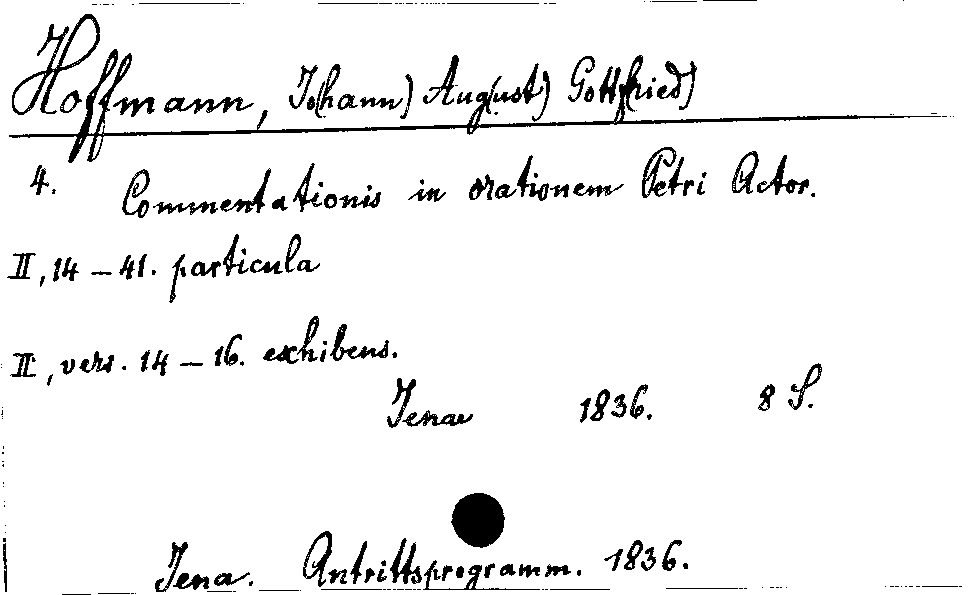 Hoffmann, Jo(hann) Aug(ust) Gottf(ried)
4. Commentationis in orationem Petri Actor.
II, 14 – 41. particula
II, vers. 14 – 16. exhibens.
Jena 1836. 8 S.
Jena. Antrittsprogramm. 1836.